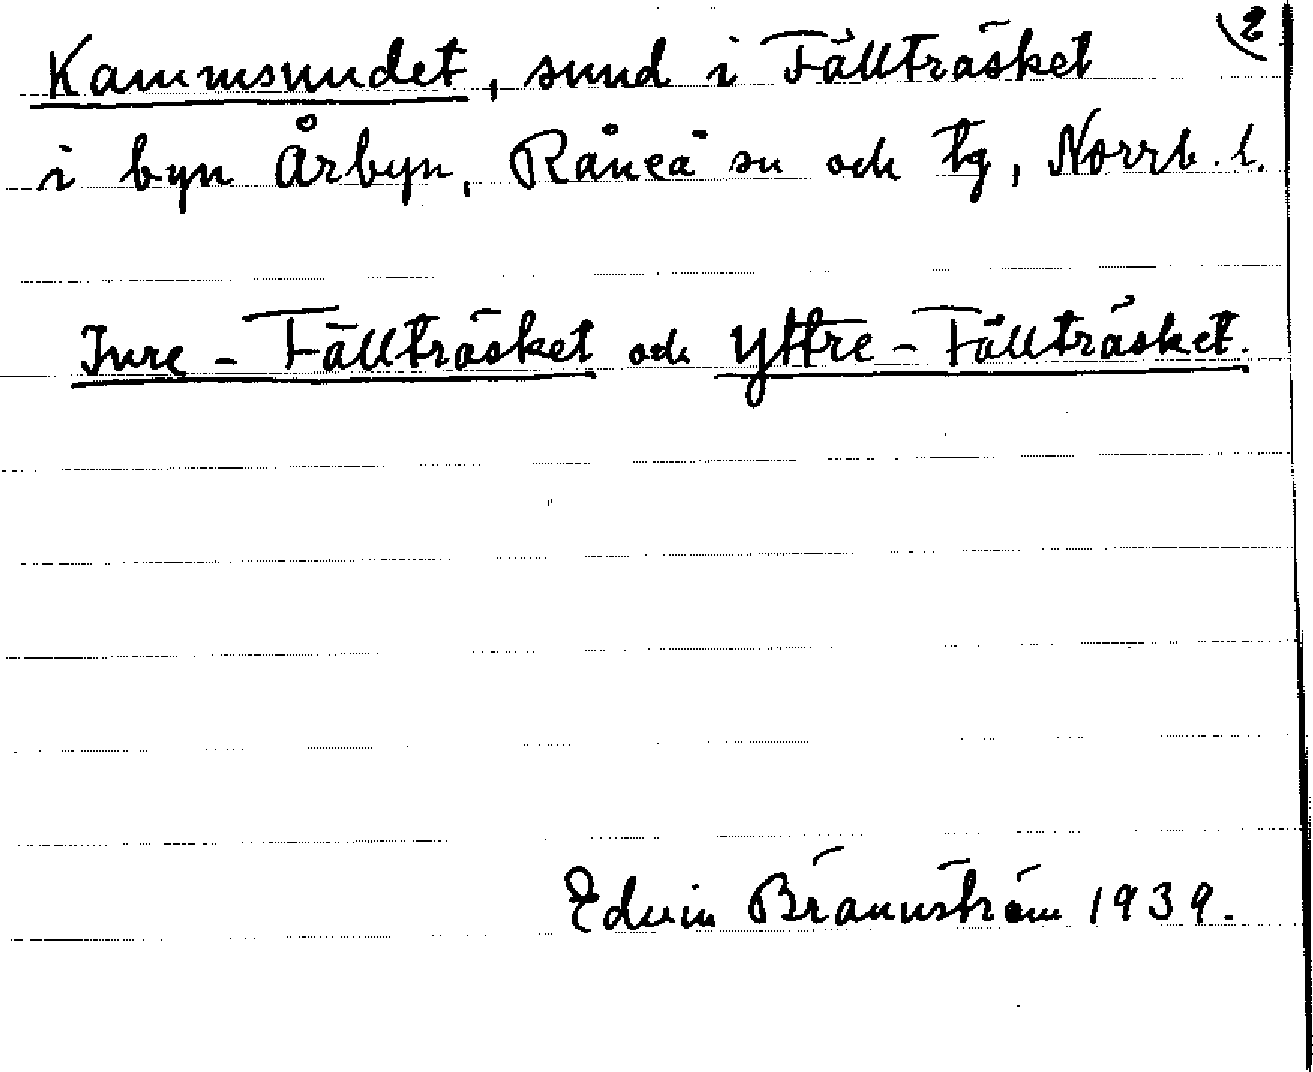 2
Kammsundet, sund i Fällträsket
i byn Årbyn, Råneå sn och tg, Norrb. l.
Inre - Fällträsket och Yttre - Fällträsket.
Edvin Brännström 1939.